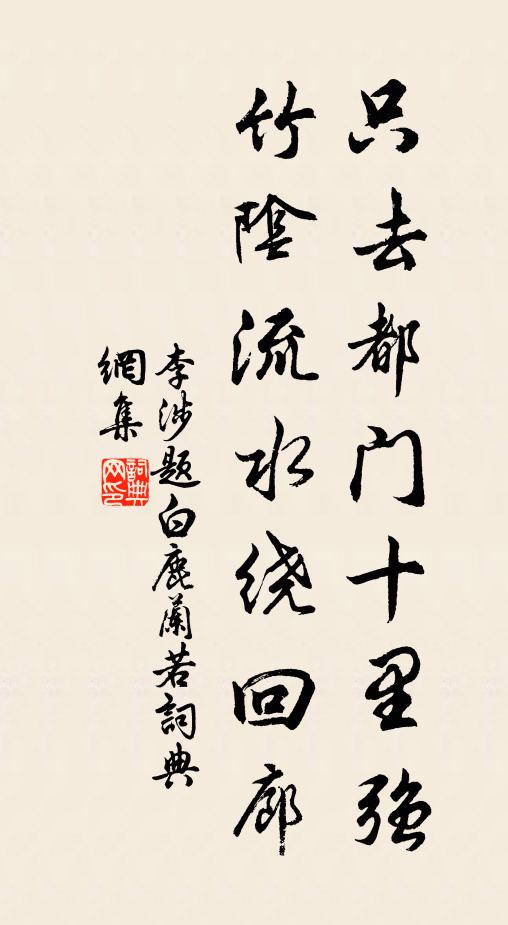 只去都门十里强
竹陰流水绕回廊
李涉题白鹿蘭若詞典
網集
詞典
网印